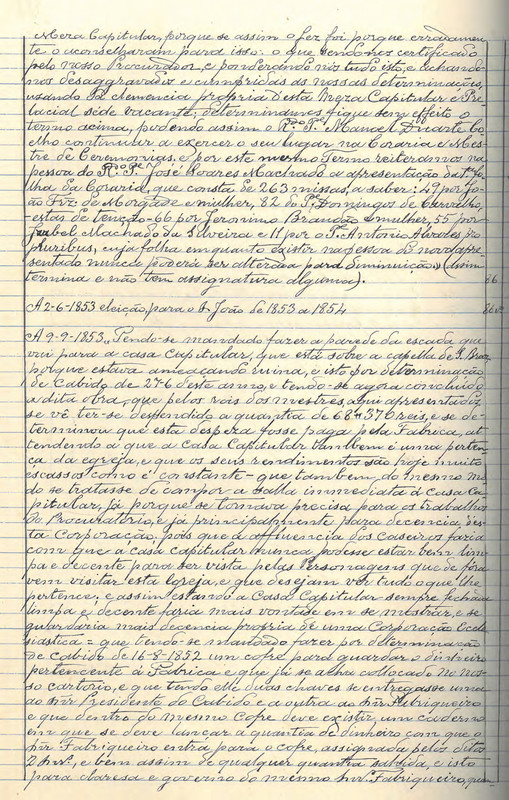 Mera Capitular, porque se assim o fez foi porque erradamen-
te o aconselharam para isso: o que sendo-nos certificado
pelo nosso Procurador, e ponderando nós tudo isto, e achando-
nos desaggravados e cumpridas as nossas determinações,
usando da clemencia propria d'esta Meza Capitular e Pre-
lacial séde vacante, determinamos fique sem effeito o
termo acima, podendo assim o R.do P.e Manoel Duarte Co-
elho continuar a exercer o seu lugar na Coraria e Mes-
tre de Ceremonias, e por este mesmo Termo reiteramos na
pessoa do R.do P.e José Soares Machado a apresentação da fo-
lha da Coraria, que consta de 263 missas, a saber: 49 por Jo-
ão Frz. de Morgade e mulher, 82 do P.e Domingos de Carvalho,
-estas de tenção-66 por Jeronimo Brandão e mulher, 55 por
Izabel Machado da Silveira e 11 por o P.e Antonio Alvares pro
pluribus, cuja folha em quanto existir na pessoa do novo apre-
sentado nunca poderá ser alterada para diminuição." (assim
termina e não tem assignatura alguma).
86
A 2-6-1853 eleição para o S. João de 1853 a 1854
86 v.o
A 9-9-1853 "Tendo-se mandado fazer a parede da escada que
vai para a casa Capitular, que está sobre a capella de S. Braz
porque estava ameaçando ruina, e isto por determinação
de Cabido de 27-6 d'este anno, e tendo-se agora concluido
a dita obra, que pelos róis dos mestres, aqui apresentados
se vê ter-se despendido a quantia de 68#376 reis, e se de-
terminou que esta despeza fosse paga pela Fabrica, at-
tendendo a que a Casa Capitular tambem é uma perten-
ça da egreja, e que os seus rendimentos são hoje muito
escassos como é constante - que tambem do mesmo mo-
do se tratasse de compor a salla immediata á Casa Ca-
pitular, já porque se tornava precisa para os trabalhos
do Procuratorio, e já principalmente para decencia d'es-
ta Corporação, pois que a affluencia dos caseiros faria
com que a casa capitular nunca podesse estar bem lim-
pa e decente para ser vista pelas Personagens que de fóra
vem visitar esta Igreja, e que desejam ver tudo o que lhe
pertence; e assim estando a Casa Capitular sempre fechada
limpa e decente faria mais vontade em se mostrar, e se
guardaria mais decencia propria de uma Corporação Eccle-
siastica = que tendo-se mandado fazer por determinação
de Cabido de 16-8-1852 um cofre para guardar o dinheiro
pertencente á Fabrica e que já se acha collocado no nos-
so cartorio, e que tendo elle duas chaves se entregasse uma
ao Snr. Presidente do Cabido e a outra ao Snr. Fabriqueiro
e que dentro do mesmo Cofre deve existir um caderno
em que se deve lançar a quantia de dinheiro com que o
Snr. Fabriqueiro entra para o cofre, assignada pelos ditos
2 Snr.s, e bem assim de qualquer quantia sahida, e isto
para claresa e governo do mesmo Snr. Fabriqueiro,